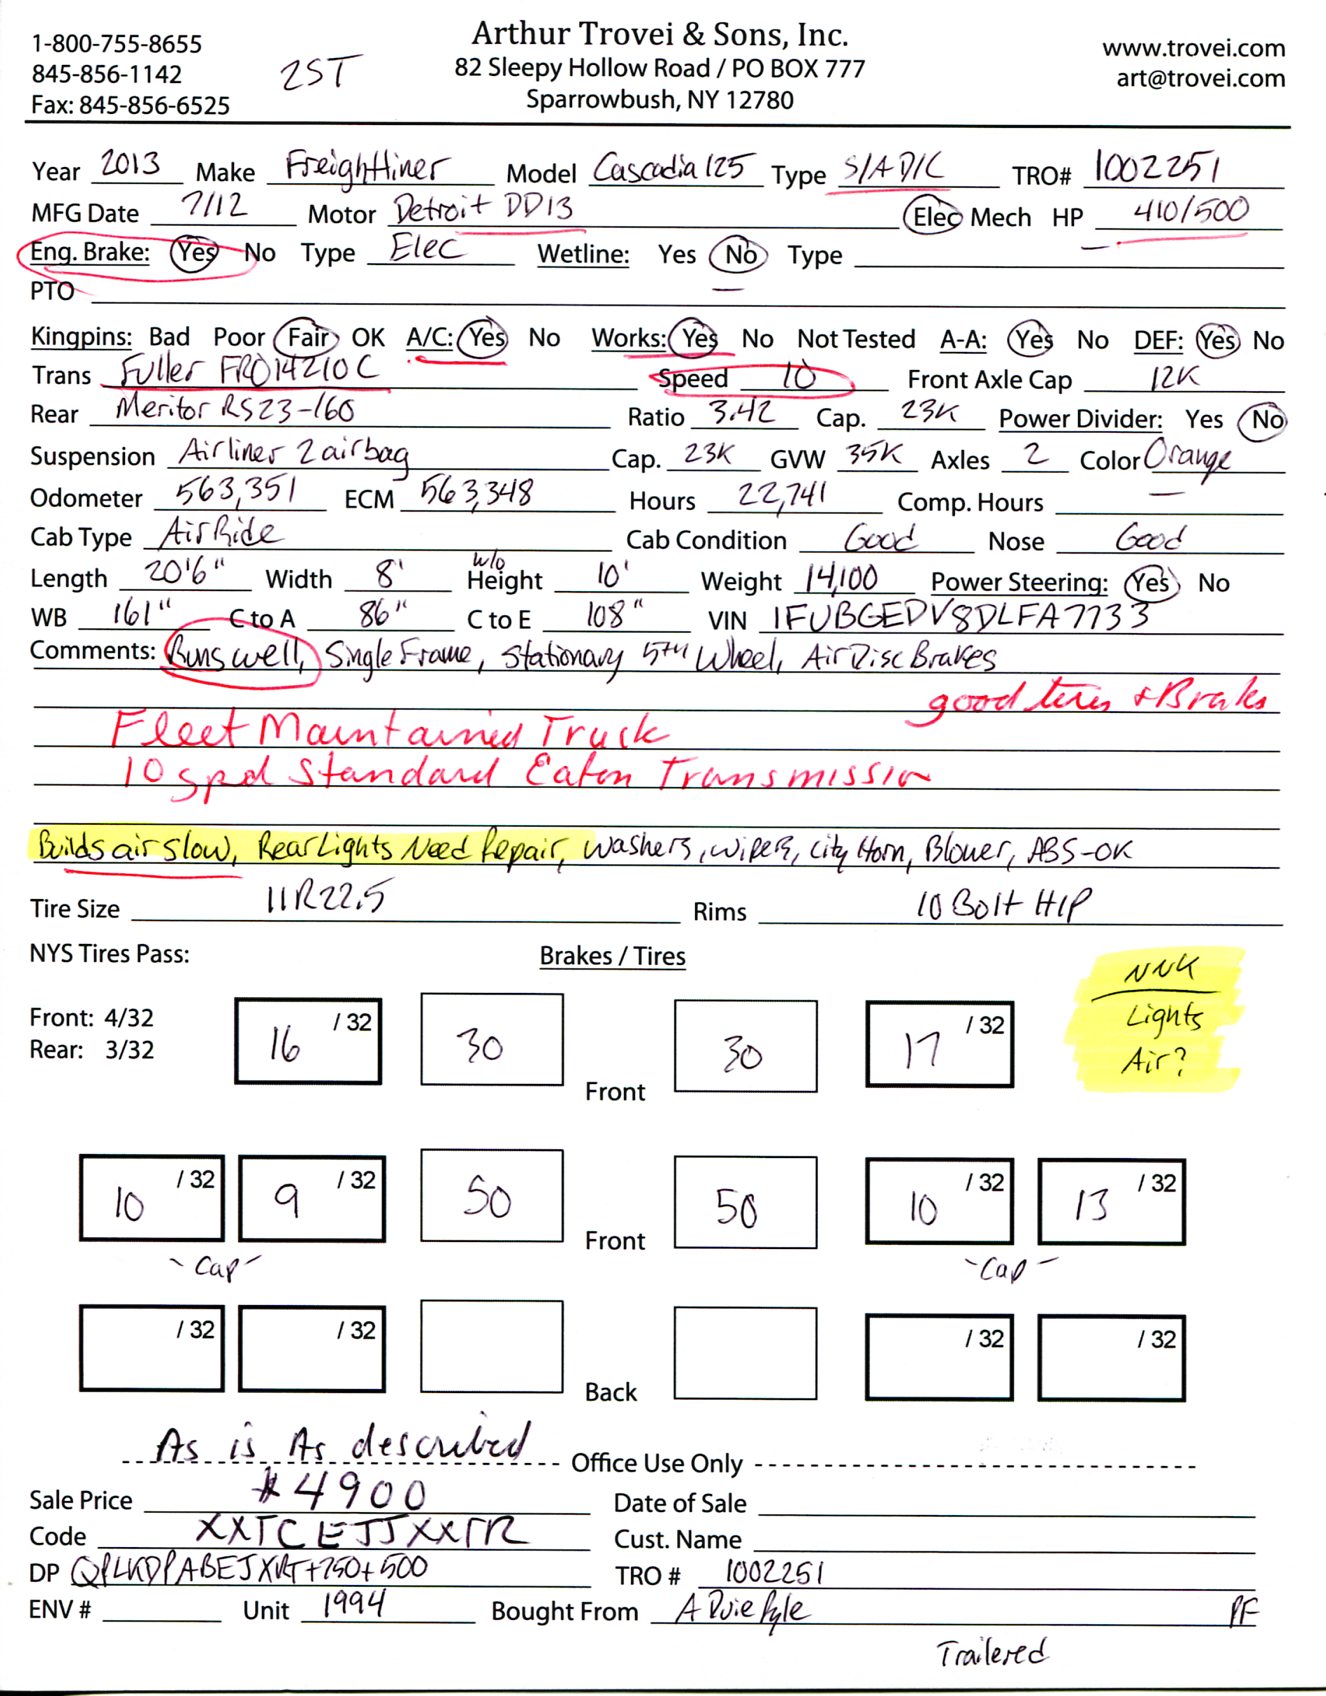 Arthur Trovei & Sons, Inc.
1-800-755-8655 82 Sleepy Hollow Road / PO BOX 777 www.trovei.com
845-856-1142 2ST Sparrowbush, NY 12780 art@trovei.com
Fax: 845-856-6525
Year 2013 Make Freightliner Model Cascadia 125 Type S/A D/C TRO# 1002251
MFG Date 7/12 Motor Detroit DD13 Elec Mech HP 410/500
Eng. Brake: Yes No Type Elec Wetline: Yes No Type
PTO
Kingpins: Bad Poor Fair OK A/C: Yes No Works: Yes No Not Tested A-A: Yes No DEF: Yes No
Trans Fuller FRO14210C Speed 10 Front Axle Cap 12K
Rear Meritor RS23-160 Ratio 3.42 Cap. 23K Power Divider: Yes No
Suspension Airliner 2 airbag Cap. 23K GVW 35K Axles 2 Color Orange
Odometer 563,351 ECM 563,348 Hours 22,741 Comp. Hours
Cab Type Air Ride Cab Condition Good Nose Good
Length 20'6" Width 8' w/o Height 10' Weight 14,100 Power Steering: Yes No
WB 161" C to A 86" C to E 108" VIN 1FUBGEDV8DLFA7733
Comments: Runs well, Single Frame, Stationary 5TH Wheel, Air Disc Brakes
good tires + Braks
Fleet Maintained Truck
10 spd Standard Eaton Transmission
Builds air slow, Rear Lights Need Repair, Washers, Wipers, City Horn, Blower, ABS-OK
Tire Size 11R22.5 Rims 10 Bolt H/P
NYS Tires Pass: Brakes / Tires NNK
Front: 4/32 16 /32 30 Front 30 17 /32 Lights
Rear: 3/32 Air?
10 /32 9 /32 50 Front 50 10 /32 13 /32
-Cap- -Cap-
/32 /32 Back /32 /32
As is As described Office Use Only
Sale Price $4900 Date of Sale
Code XXTCEJJXXTR Cust. Name
DP +750+500 TRO # 1002251
ENV # Unit 1994 Bought From A Duie Pyle PF
Trailered